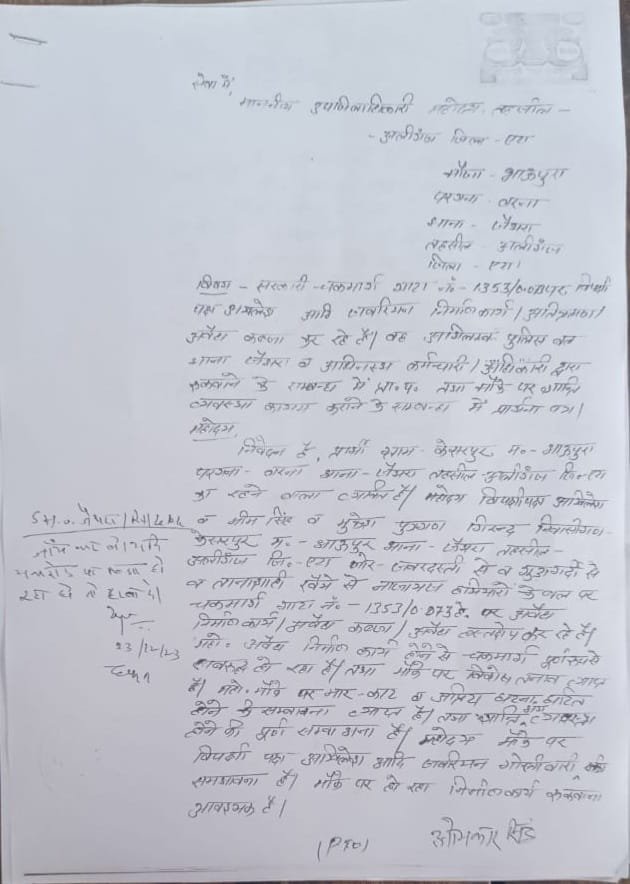 सेवा में,
माननीय उपजिलाधिकारी महोदय तहसील -
- अलीगंज जिला - एटा
मौजा - भाऊपुरा
परगना - बरना
थाना - जैथरा
तहसील - अलीगंज
जिला - एटा।
विषय - सरकारी चकमार्ग गाटा नं० - 1353/0.073 पर विपक्षी
पक्ष अखिलेश आदि जबरियन निर्माण कार्य / अतिक्रमण /
अवैध कब्जा कर रहे है। वह अविलम्ब पुलिस बल
थाना जैथरा व अधिनस्थ कर्मचारी / अधिकारी द्वारा
रुकवाने के सम्बन्ध में प्रा. प. तथा मौके पर शान्ति
व्यवस्था कायम कराने के सम्बन्ध में प्रार्थना पत्र।
महोदय,
निवेदन है, प्रार्थी ग्राम - केसरपुर म. - भाऊपुरा
परगना - बरना थाना - जैथरा तहसील - अलीगंज जि० - एटा
का रहने वाला व्यक्ति है। महोदय विपक्षीपक्ष अखिलेश
व भीम सिंह व मुकेश पुत्रगण गिरन्द निवासीगण -
केसरपुर म. - भाऊपुर थाना - जैथरा तहसील -
अलीगंज जि. - एटा जोर - जबरदस्ती से व गुण्डागर्दी से
व तानाशाही रवैये से नाजायज हथियारों के बल पर
चकमार्ग गाटा नं. - 1353/0.073 हे. पर अवैध
निर्माण कार्य / अवैध कब्जा / अवैध हस्तक्षेप कर रहे है।
महो. अवैध निर्माण कार्य होने से चकमार्ग पूर्णरूप से
अवरूद्ध हो रहा है। तथा मौके पर विशेष तनाव व्याप्त
है। महो. मौके पर मार - काट व अप्रिय घटना घटित
होने के सम्भावना व्याप्त है। तथा शान्ति भंग व्यवस्था
होने की पूर्ण सम्भावना है। महोदय मौके पर
विपक्षी पक्ष अखिलेश आदि जबरियन गोलीबारी की
सम्भावना है। मौके पर हो रहा निर्माण कार्य रुकवाना
आवश्यक है।
ओमकार सिंह
(P.T.O)
S.H.O. जैथरा / RI / Lekhpal
जाँच कर ले यदि
चकरोड पर कब्जा हो
रहा है तो हटवा दें।
23/12/23